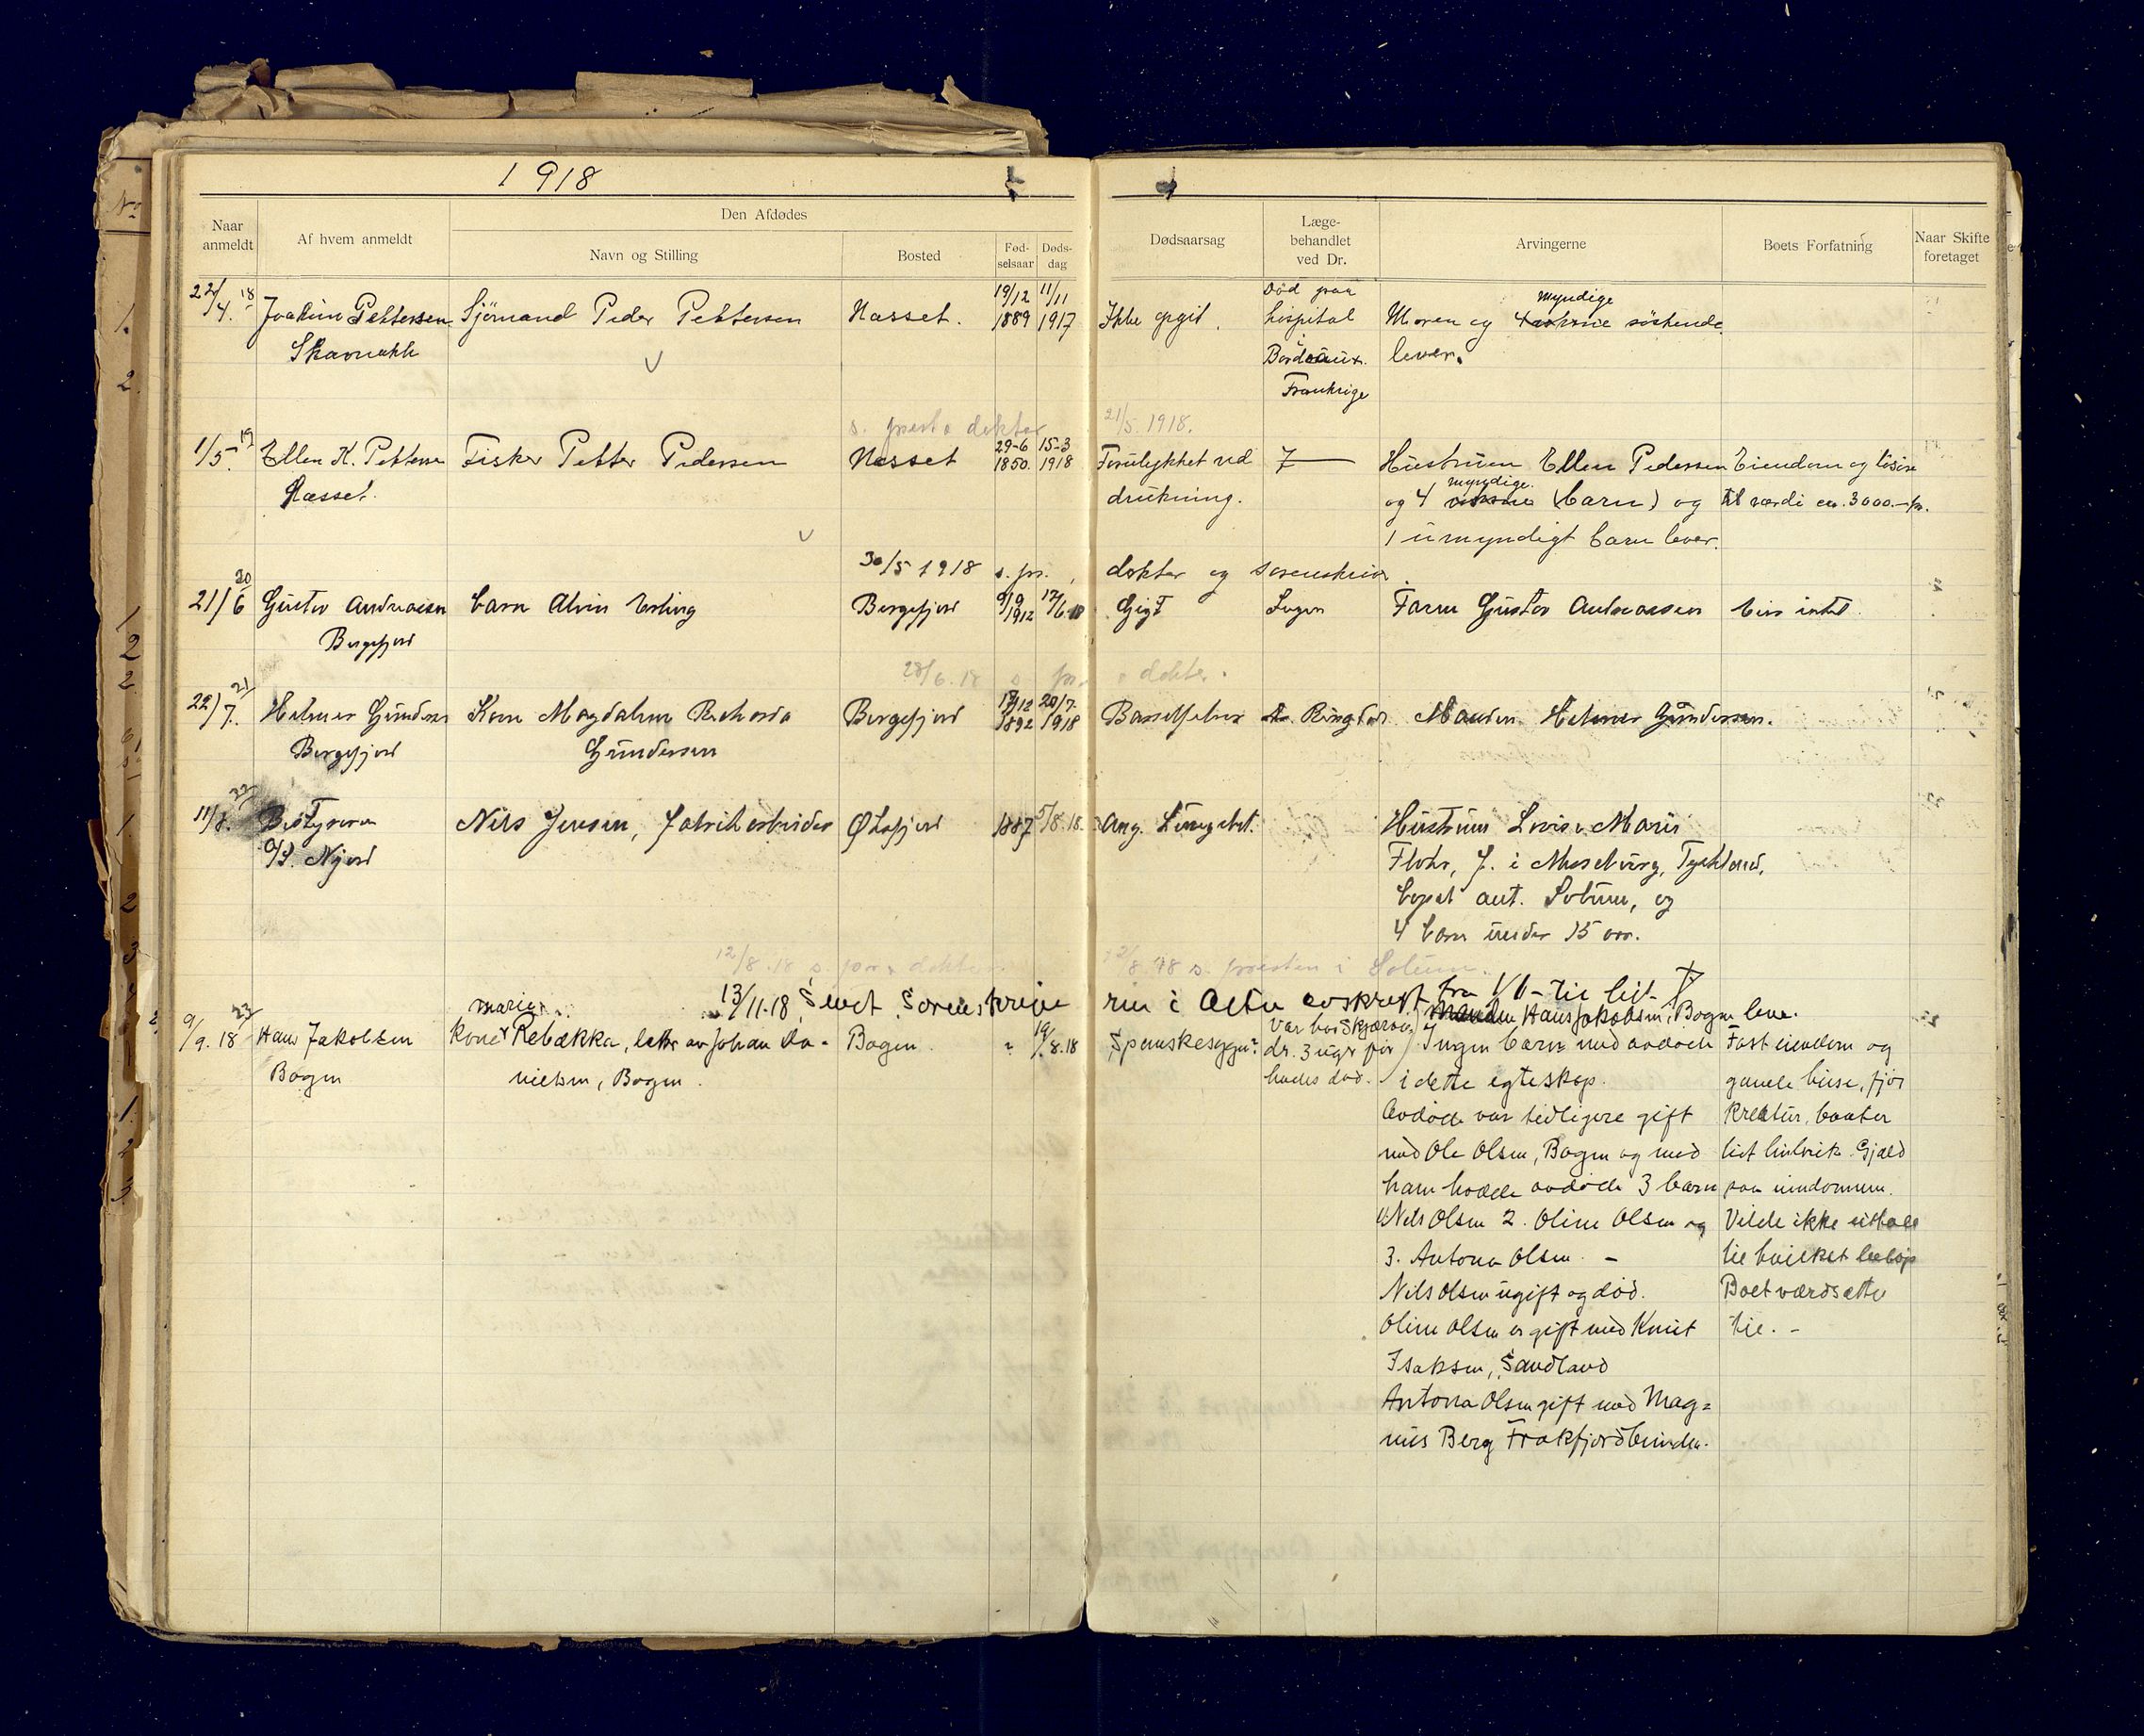 1918
Naar anmeldt
Af hvem anmeldt
Den Afdødes
Navn og Stilling
Bosted
Fød-
selsaar
Døds-
dag
Dødsaarsag
Læge-
behandlet
ved Dr.
Arvingerne
Boets Forfatning
Naar Skifte
foretaget
22/4. 18 Joakim Pettersen Sjömand Peder Pettersen Nasset. 19/12 1889 11/11 1917 Ikke opgit. Död paa hospital i Bordeaux. Frankrige
Skavnakk
Moren og 4 voksne myndige söskende
lever.
s. prest o doktor 21/5. 1918.
1/5. 19 Ellen K. Petterse Fisker Petter Pedersen Nasset 29-6 1850. 15-3 1918 Forulykket ved
Nasset.
drukning.
Hustruen Ellen Pedersen
og 4 voksne myndige. (barn) og
1 umyndigt barn lever.
Eiendom og lösöre
til værdi ca. 3000.- kr.
30/5 1918 s. pr. doktor og sorenskriver.
21/6 20 Gustav Andreasen barn Alvin Erling Bergsfjord 9/9 1912 17/6.18 Gigt Ingen Faren Gustav Andreasen Eier intet.
Bergsfjord
28/6.18 s pr. o doktor.
22/7. 21 Helmer Gundersen Kone Magdalene Rikarda Bergsfjord 1892 20/7. 1918 Barselfeber Dr. Ringdal Manden Helmer Gundersen.
Bergsfjord Gundersen
11/8. 22 Bestyreren Nils Jensen, Fabrikarbeider Øksfjord 1887 5/8.18. Ang. Lungebet.
A/S. Njord
Hustruen Lovise Marie
Flohr, f. i Merseburg, Tyskland,
bopæl ant. Solum, og
4 barn under 15 aar.
12/8.18 s. pr. o doktor. 12/8.18 s. presten i Solum.
13/11.18 Sendt Sorenskrive ren i Alta avskrift fra 1/1 - til hit
9/9.18 23 Hans Jakobsen kone Marie Rebækka, datter av Johan Da- Bogen. ? 19/8.18 Spanskesygen?
Bogen nielsen, Bogen.
Var hos Skjærvø
dr. 3 uger før
hendes død.
Manden Hans Jakobsen i Bogen lever.
Ingen barn med avdøde
i dette egteskap.
Avdøde var tidligere gift
med Ole Olsen, Bogen og med
ham hadde avdøde 3 barn
1. Nils Olsen 2. Oline Olsen og
3. Antona Olsen. -
Nils Olsen ugift og død.
Oline Olsen er gift med Knut
Isaksen, Sandland
Antona Olsen gift med Mag-
nus Berg Frakfjordbunden.
Fast eiendom og
gamle huse, fjøs
kreatur, baater
litt linbruk. Gjæld
paa eiendommen.
Vilde ikke uttale
til hvilket beløp
Boet værdsættes
til. -